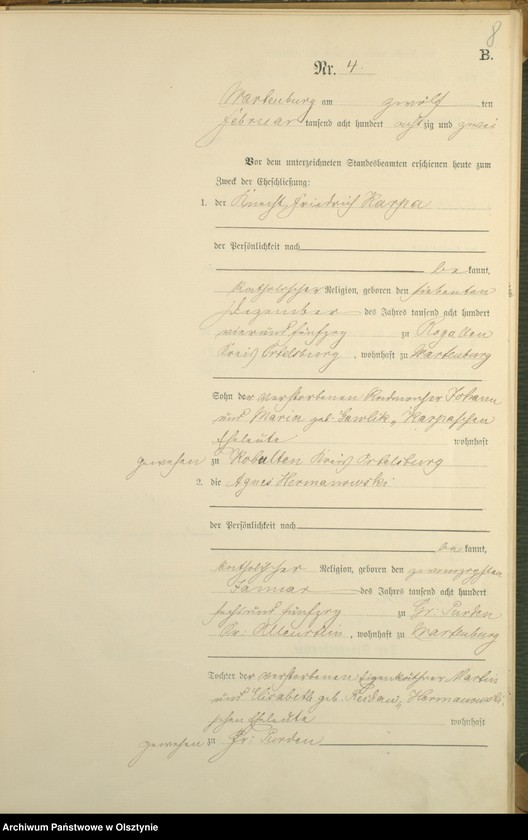 8
B.
Nr. 4.
Wartenburg am zwölf ten
Februar tausend acht hundert achtzig und zwei
Vor dem unterzeichneten Standesbeamten erschienen heute zum
Zweck der Eheschließung:
1. der Knecht Friedrich Karpa
der Persönlichkeit nach
bekannt,
katholischer Religion, geboren den siebenten
Dezember des Jahres tausend acht hundert
vierundfünfzig zu Rogallen
Kreis Ortelsburg, wohnhaft zu Wartenburg
Sohn der verstorbenen Johann
und Maria geb. Gawlik, Karpaschen
Eheleute wohnhaft
gewesen zu Kobulten Kreis Ortelsburg
2. die Agnes Hermanowski
der Persönlichkeit nach
bekannt,
katholischer Religion, geboren den zwanzigsten
Januar des Jahres tausend acht hundert
sechsundfünfzig zu Gr: Purden
Kr: Allenstein, wohnhaft zu Wartenburg
Tochter der verstorbenen Eigenkäthner Martin
und Elisabeth geb. Hermanowski
schen Eheleute wohnhaft
gewesen zu Gr: Purden
Archiwum Państwowe w Olsztynie